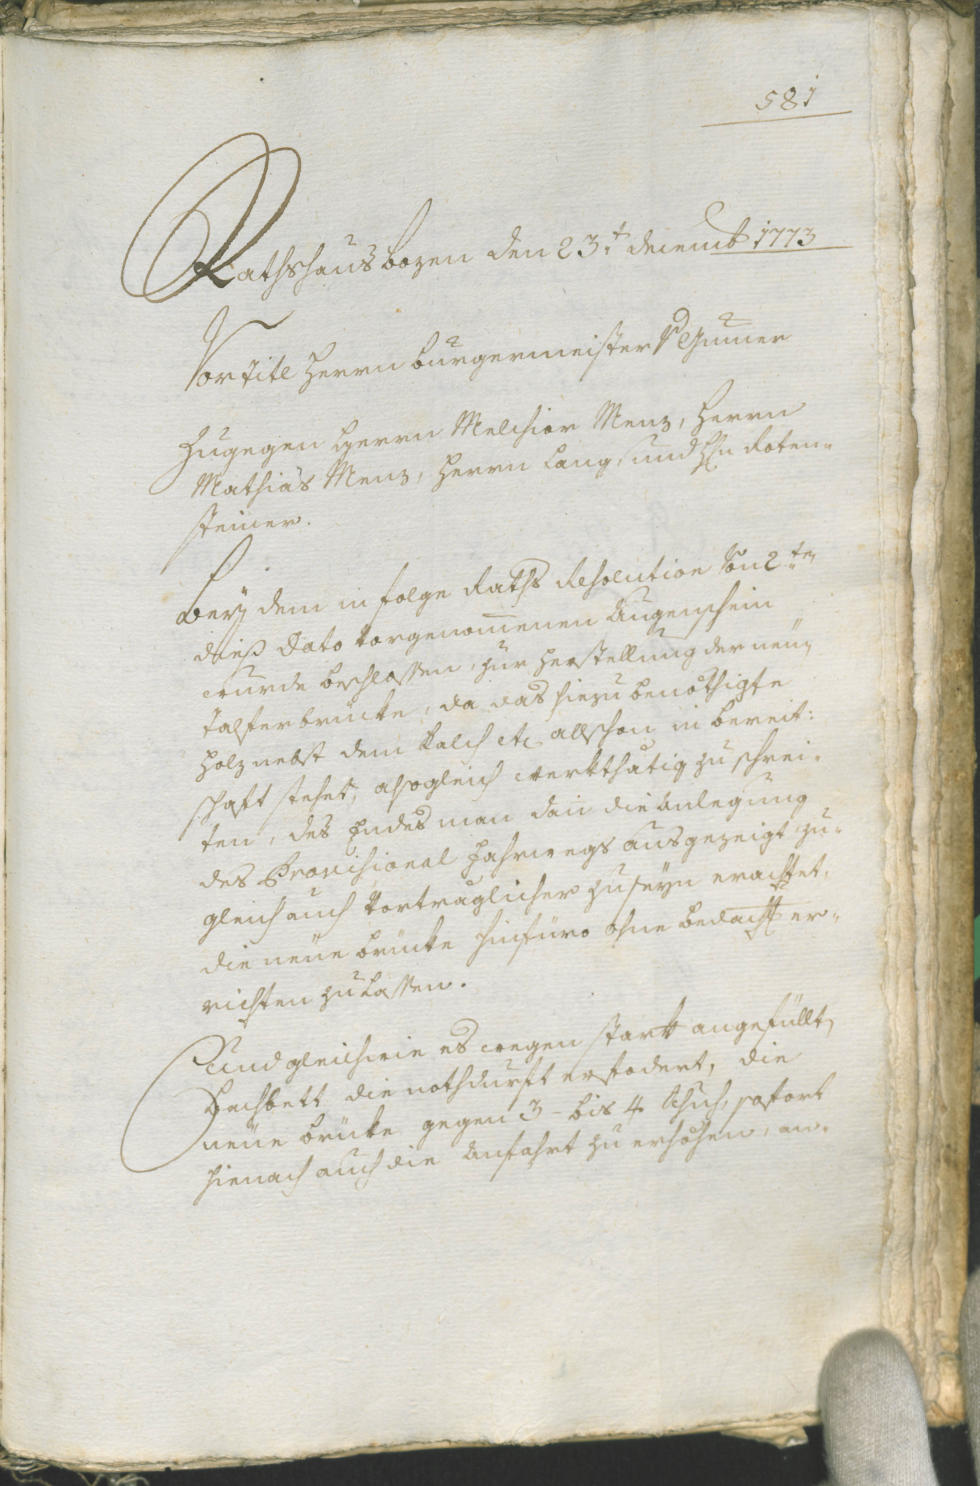 581
Rathshaus Bozen den 23.t decemb 1773
Vor Titl Herrn Burgermeister v Gumer
Zugegen Herrn Melchior Menz, Herrn
Mathias Menz, Herrn Lang, und Hn Roten-
steiner.
Beÿ dem in folge Raths Resolution von 2ten
dieß Dato vorgenommenen Augenschein
wurde beschlossen, zur Herstellung der neuen
Talferbrücke, da das hiezu benöthigte
Holz nebst dem Kalch etc allschon in bereit:
schaft stehet, alsogleich werkthätig zu schrei-
ten, des Endes man dan die Anlegung
des Provisional Fahrwegs ausgezeigt zu-
gleich auch vorträglicher zu seyn erachtet,
die neue Brücke hinfüro ohne bedacht er-
richten zu lassen.
Und gleichwie es wegen stark angefüllt
Bachbett die nothdurft erfodert, die
neue Brücke gegen 3 - bis 4 Schuch, sofort
hienach auch die Anfahrt zu erhöhen, an-